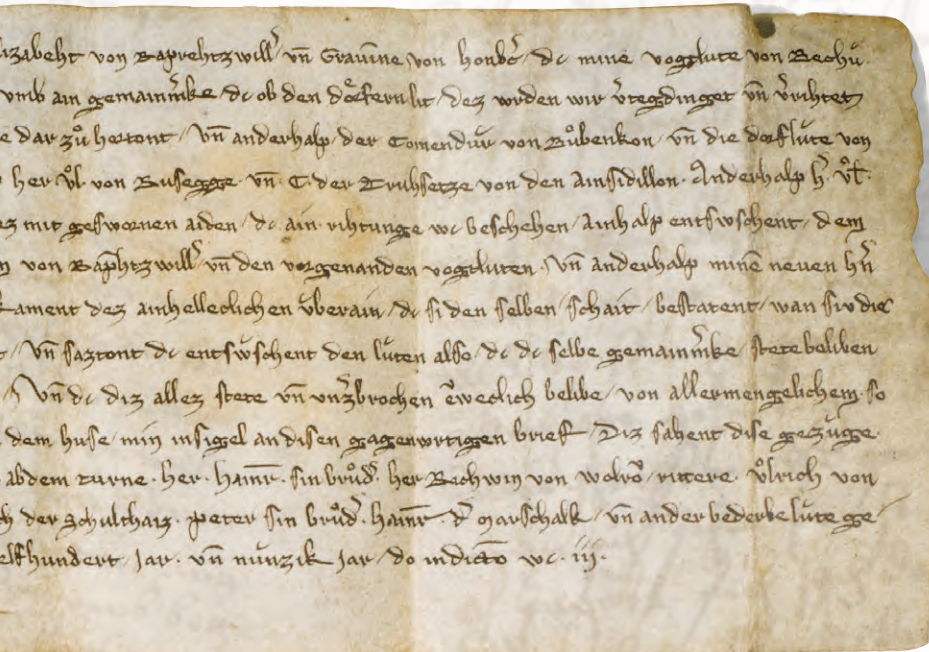 lizabeht von Raprehtzwill᷑ vn̄ Gravinne von honbc᷑ / dc mine vogtlute von Bechuͥ.
vmb ain gemainmͬke / dc ob den doͤrfern lit / dez wrden wir v᷑tegdinget vn̄ v᷑rihtet
e dar zuͦ hortont / Vn̄ anderhalp / der Comenduͥr von Buͦbenkon / vn̄ die dorfluͥte von
her / Uͦl᷑ von Rusegge · vn̄ · C · der Truhsetze von den Ainsidillon · Anderhalp h᷑ · Uͦl᷑ ·
ez mit geswornen aiden / dc ain rihtunge wc beschehen / ainhalp entswschent / dem
n von Rap̄htzwill᷑ vn̄ den vorgenanden vogtluten · Vn̄ anderhalp minē neuen hn᷑
kament dez ainhelleclichen uͥberain / dc si den selben / schait / bestatent / wan si v die
t / Vn̄ saztont dc entswͥschent den luͥten also / dc dc selbe gemainmͬke / stete beliben
Vn̄ dc diz allez stete vn̄ vnz᷑brochen ēweclich belibe / von allermengelichem · so
dem huse / min insigel an disen gagenwrtigen brief / Diz sahent dise gezuͥge ·
ab dem turne · her · hainr̄ · sin bruͦd᷑ · her Bechwin von wolrō / rittere · uͦlrich von
ch der Schulthaiz · peter sin bruͦd᷑ · hainr̄ · d᷑ Marschalk / vn̄ ander bederbe luͥte ge/
elfhundert / Jar · vn̄ nuͥnzik Jar / do indictō wc · iij ·